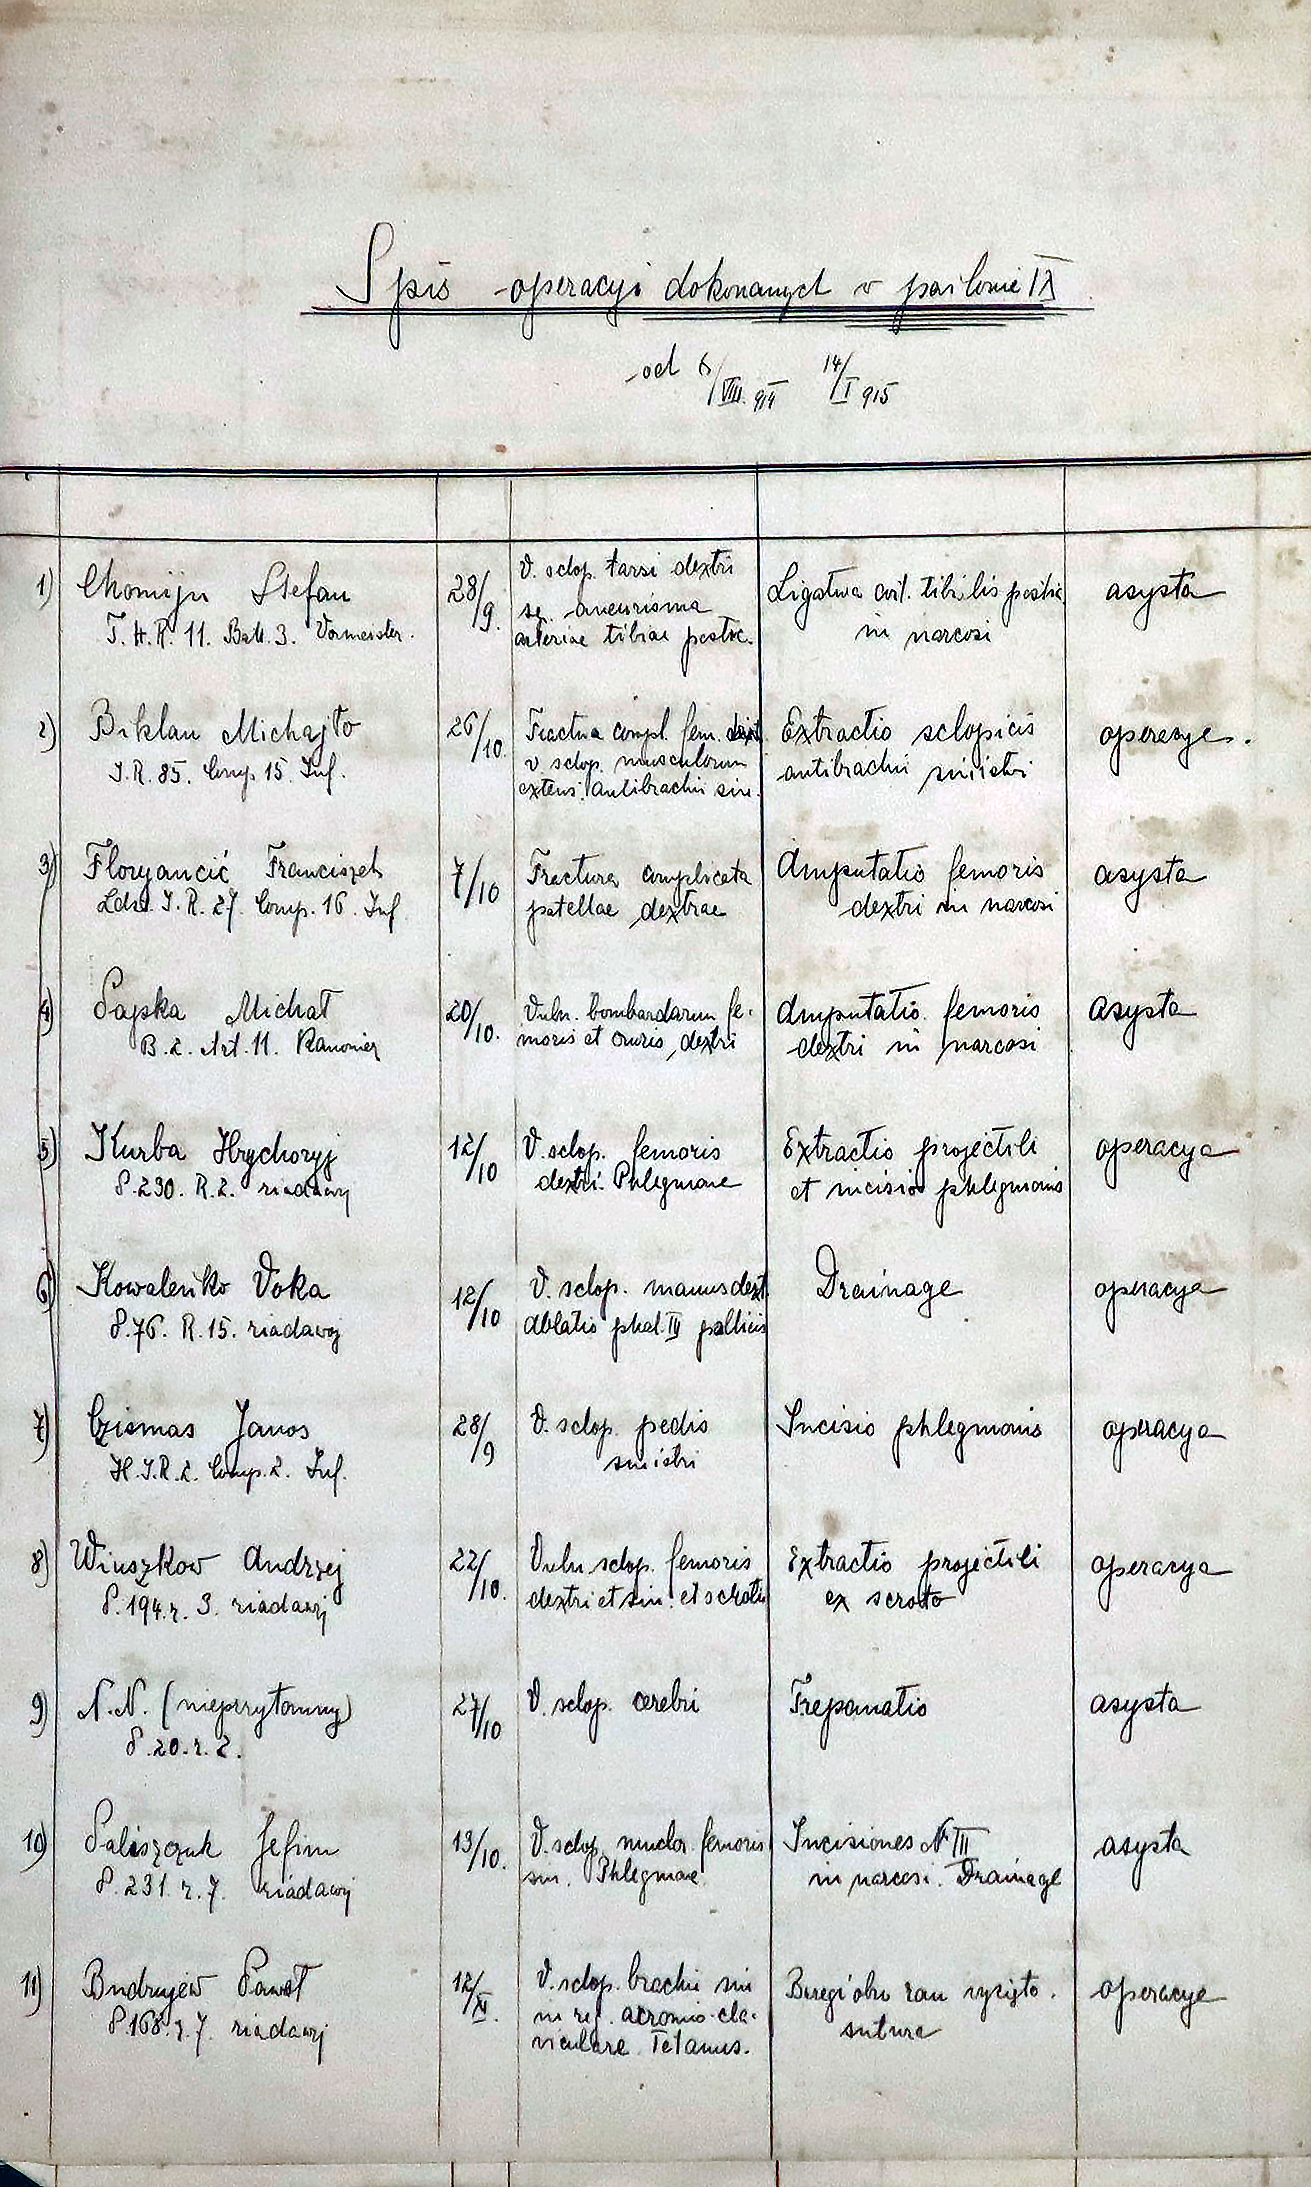 Spis operacyi dokonanych w pawilonie IX
od 6/VIII. 914 14/I 915
1) Chomijn Stefan 28/9. V. sclop. tarsi dextri Ligatura art. tibialis postic. asysta
F. H. R. 11. Batt. 3. Vormeister. se. aneurisma in narcosi
arteriae tibiae postic.
2) Biklan Michajło 26/10. Fractura compl. fem. dext. Extractio sclopicis operacye.
I. R. 85. Comp. 15. Inf. v. sclop. musculorum antibrachii sinistri
extens. antibrachii sin.
3) Floryancić Franciszek 7/10 Fractura complicata Amputatio femoris asysta
Ldst. I. R. 27. Comp. 16. Inf. patellae dextrae dextri in narcosi
4) Papka Michał 20/10. Vuln. bombardarum fe- Amputatio femoris asysta
B. 2. Art. 11. Kanonier moris et cruris dextri dextri in narcosi
5) Kurba Hrychoryj 12/10 V. sclop. femoris Extractio projectili operacya
P. 230. R. 2. riadawoj dextri. Phlegmone et incisio phlegmonis
6) Kowaleńko Voka 12/10 V. sclop. manus dext. Drainage operacya
P. 76. R. 15. riadawoj Ablatio phal. III pollicis
7) Czismas Janos 28/9 V. sclop. pedis Incisio phlegmonis operacya
H. I. R. 2. Comp. 2. Inf. sinistri
8) Winszkow Andrzej 22/10. Vuln. sclop. femoris Extractio projectili operacya
P. 194. r. 3. riadawoj dextri et sin. et scroti ex scroto
9) N. N. (nieprzytomny) 27/10 V. sclop. cerebri Trepanatio asysta
P. 20. r. 2.
10) Paliszczuk Jefim 13/10. V. sclop. femoris Incisiones № III asysta
P. 231. r. 7. riadawoj sin. Phlegmone in narcosi. Drainage
11) Bndrujew Paweł 12/XI. V. sclop. brachii sin Brzegi obu ran operacye
P. 168. r. 7. riadawoj in reg. acromio-cla- sutura
viculare. Tetanus.